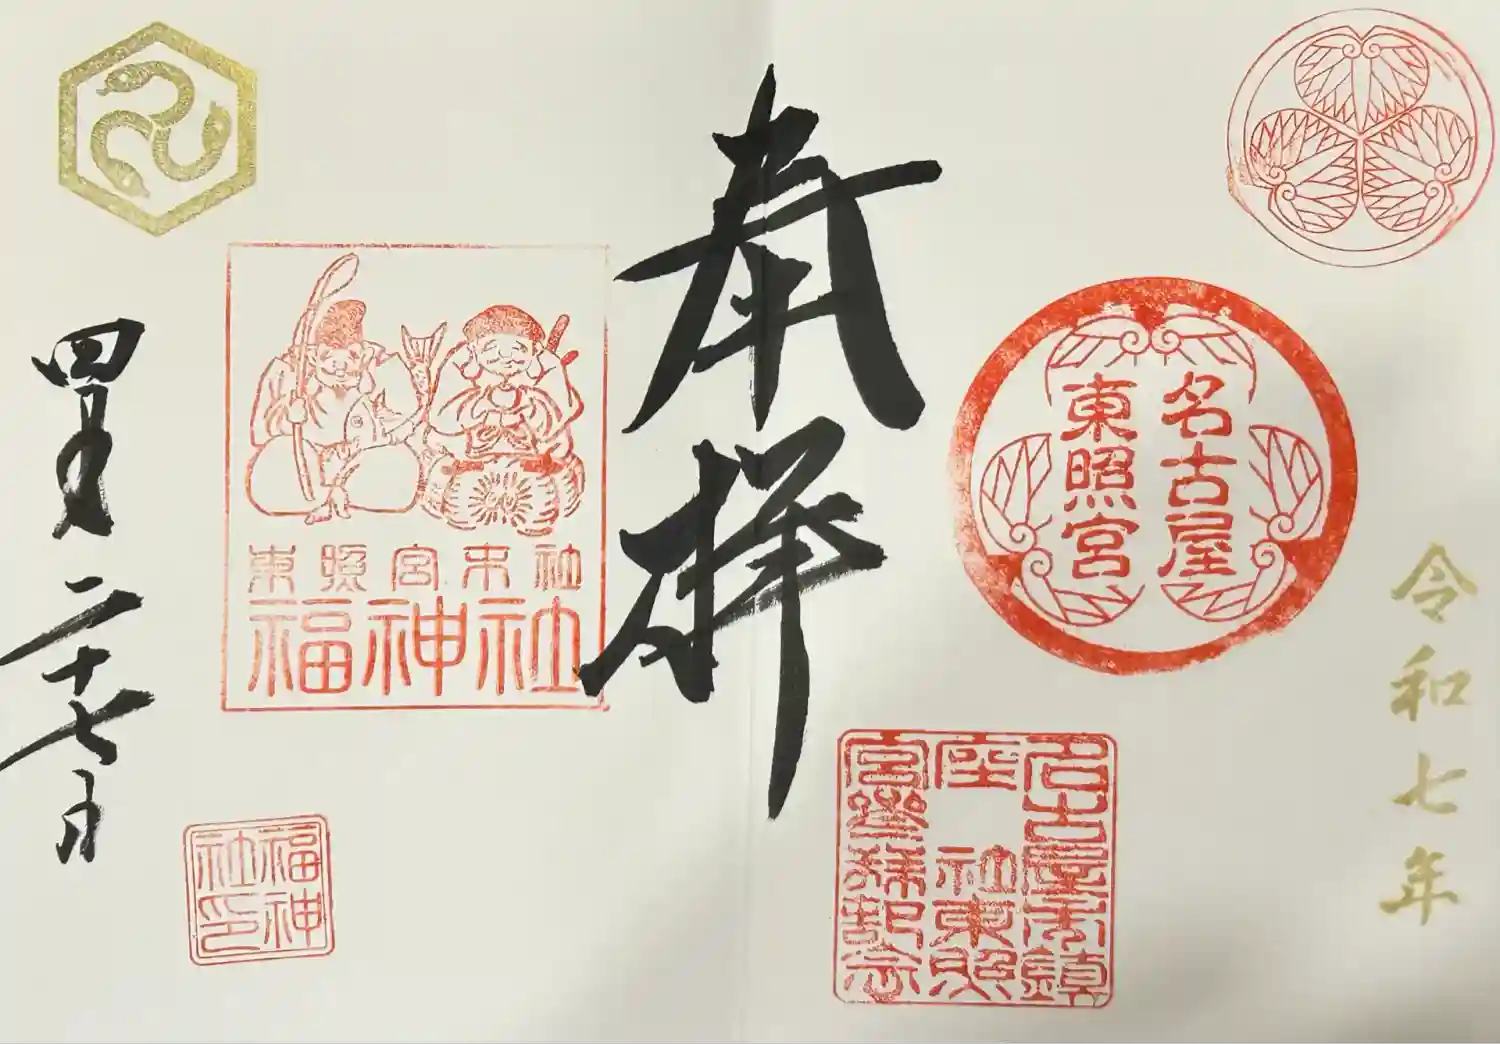 令和七年
名古屋
東照宮
名古屋市鎮
座 社東照
宮參拜記念
奉拝
東照宮末社
福神社
福神
社印
四月二十七日